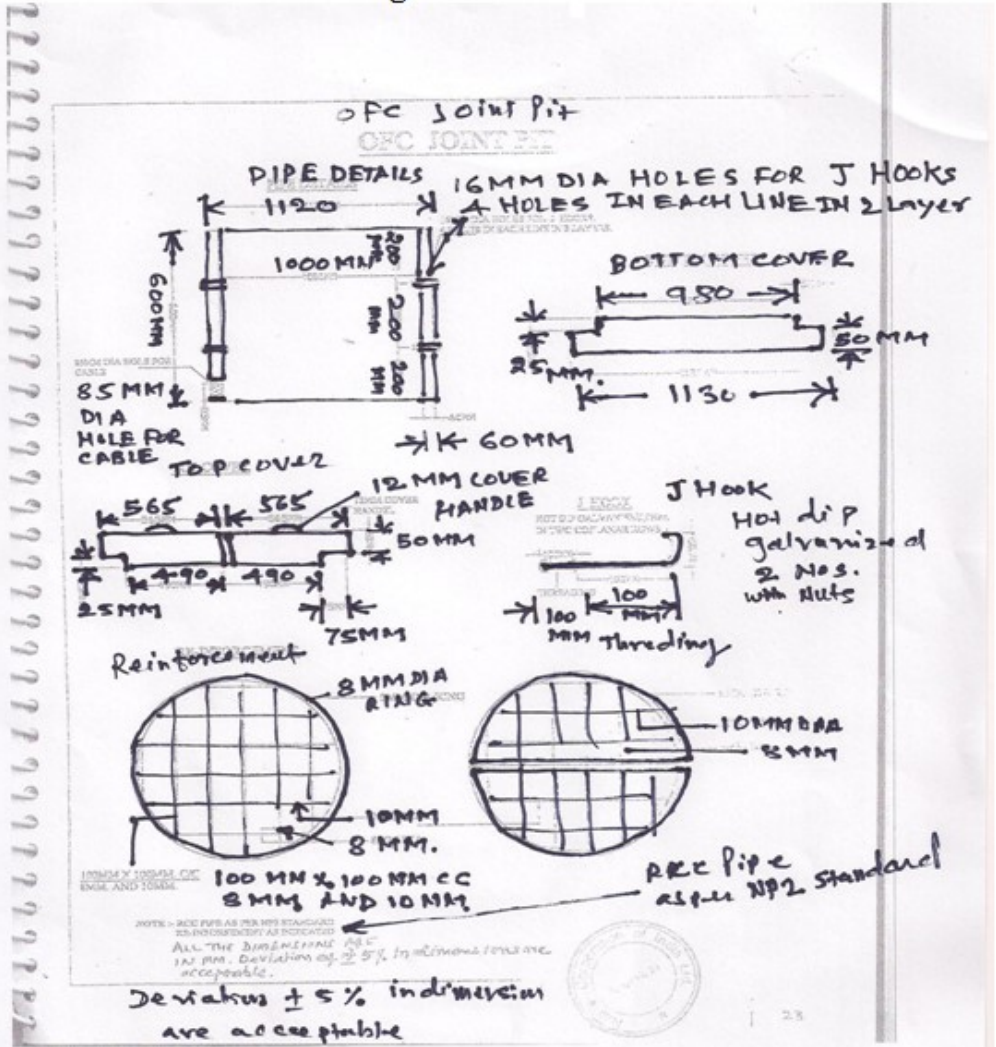 OFC Joint Pit
OFC JOINT PIT
PIPE DETAILS
1120
16MM DIA HOLES FOR J HOOKS
4 HOLES IN EACH LINE IN 2 Layer
200 MM
1000MM
600MM
200 MM
200 MM
85MM
DIA
HOLE FOR
CABLE
60MM
BOTTOM COVER
980
50MM
25MM.
1130
TOP COVER
565
565
12MM COVER
HANDLE
50MM
490
490
25MM
75MM
J HOOK
J Hook
Hot dip
galvanized
2 Nos.
with Nuts
100
MM
100
MM
Threding
Reinforcement
8MMDIA
RING
10MM
8 MM.
10MM DIA
8MM
100MM X 100MM C/C
8MM. AND 10MM.
100 MM X 100MM CC
8MM AND 10MM
RCC Pipe
as per NP2 Standard
NOTE :- RCC PIPE AS PER NP2 STANDARD
ALL THE DIMENSIONS ARE
IN MM. Deviation of ± 5% in dimensions are
acceptable.
Deviation ± 5% in dimension
are acceptable
23